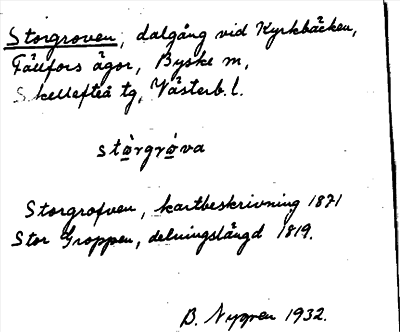 Storgroven, dalgång vid Kyrkbäcken,
Fällfors ägor, Byske sn,
Skellefteå tg, Västerb. l.
stògrǿva
Storgrofven, kartbeskrivning 1871
Stor Groppen, delningslängd 1819.
B. Nygren 1932.